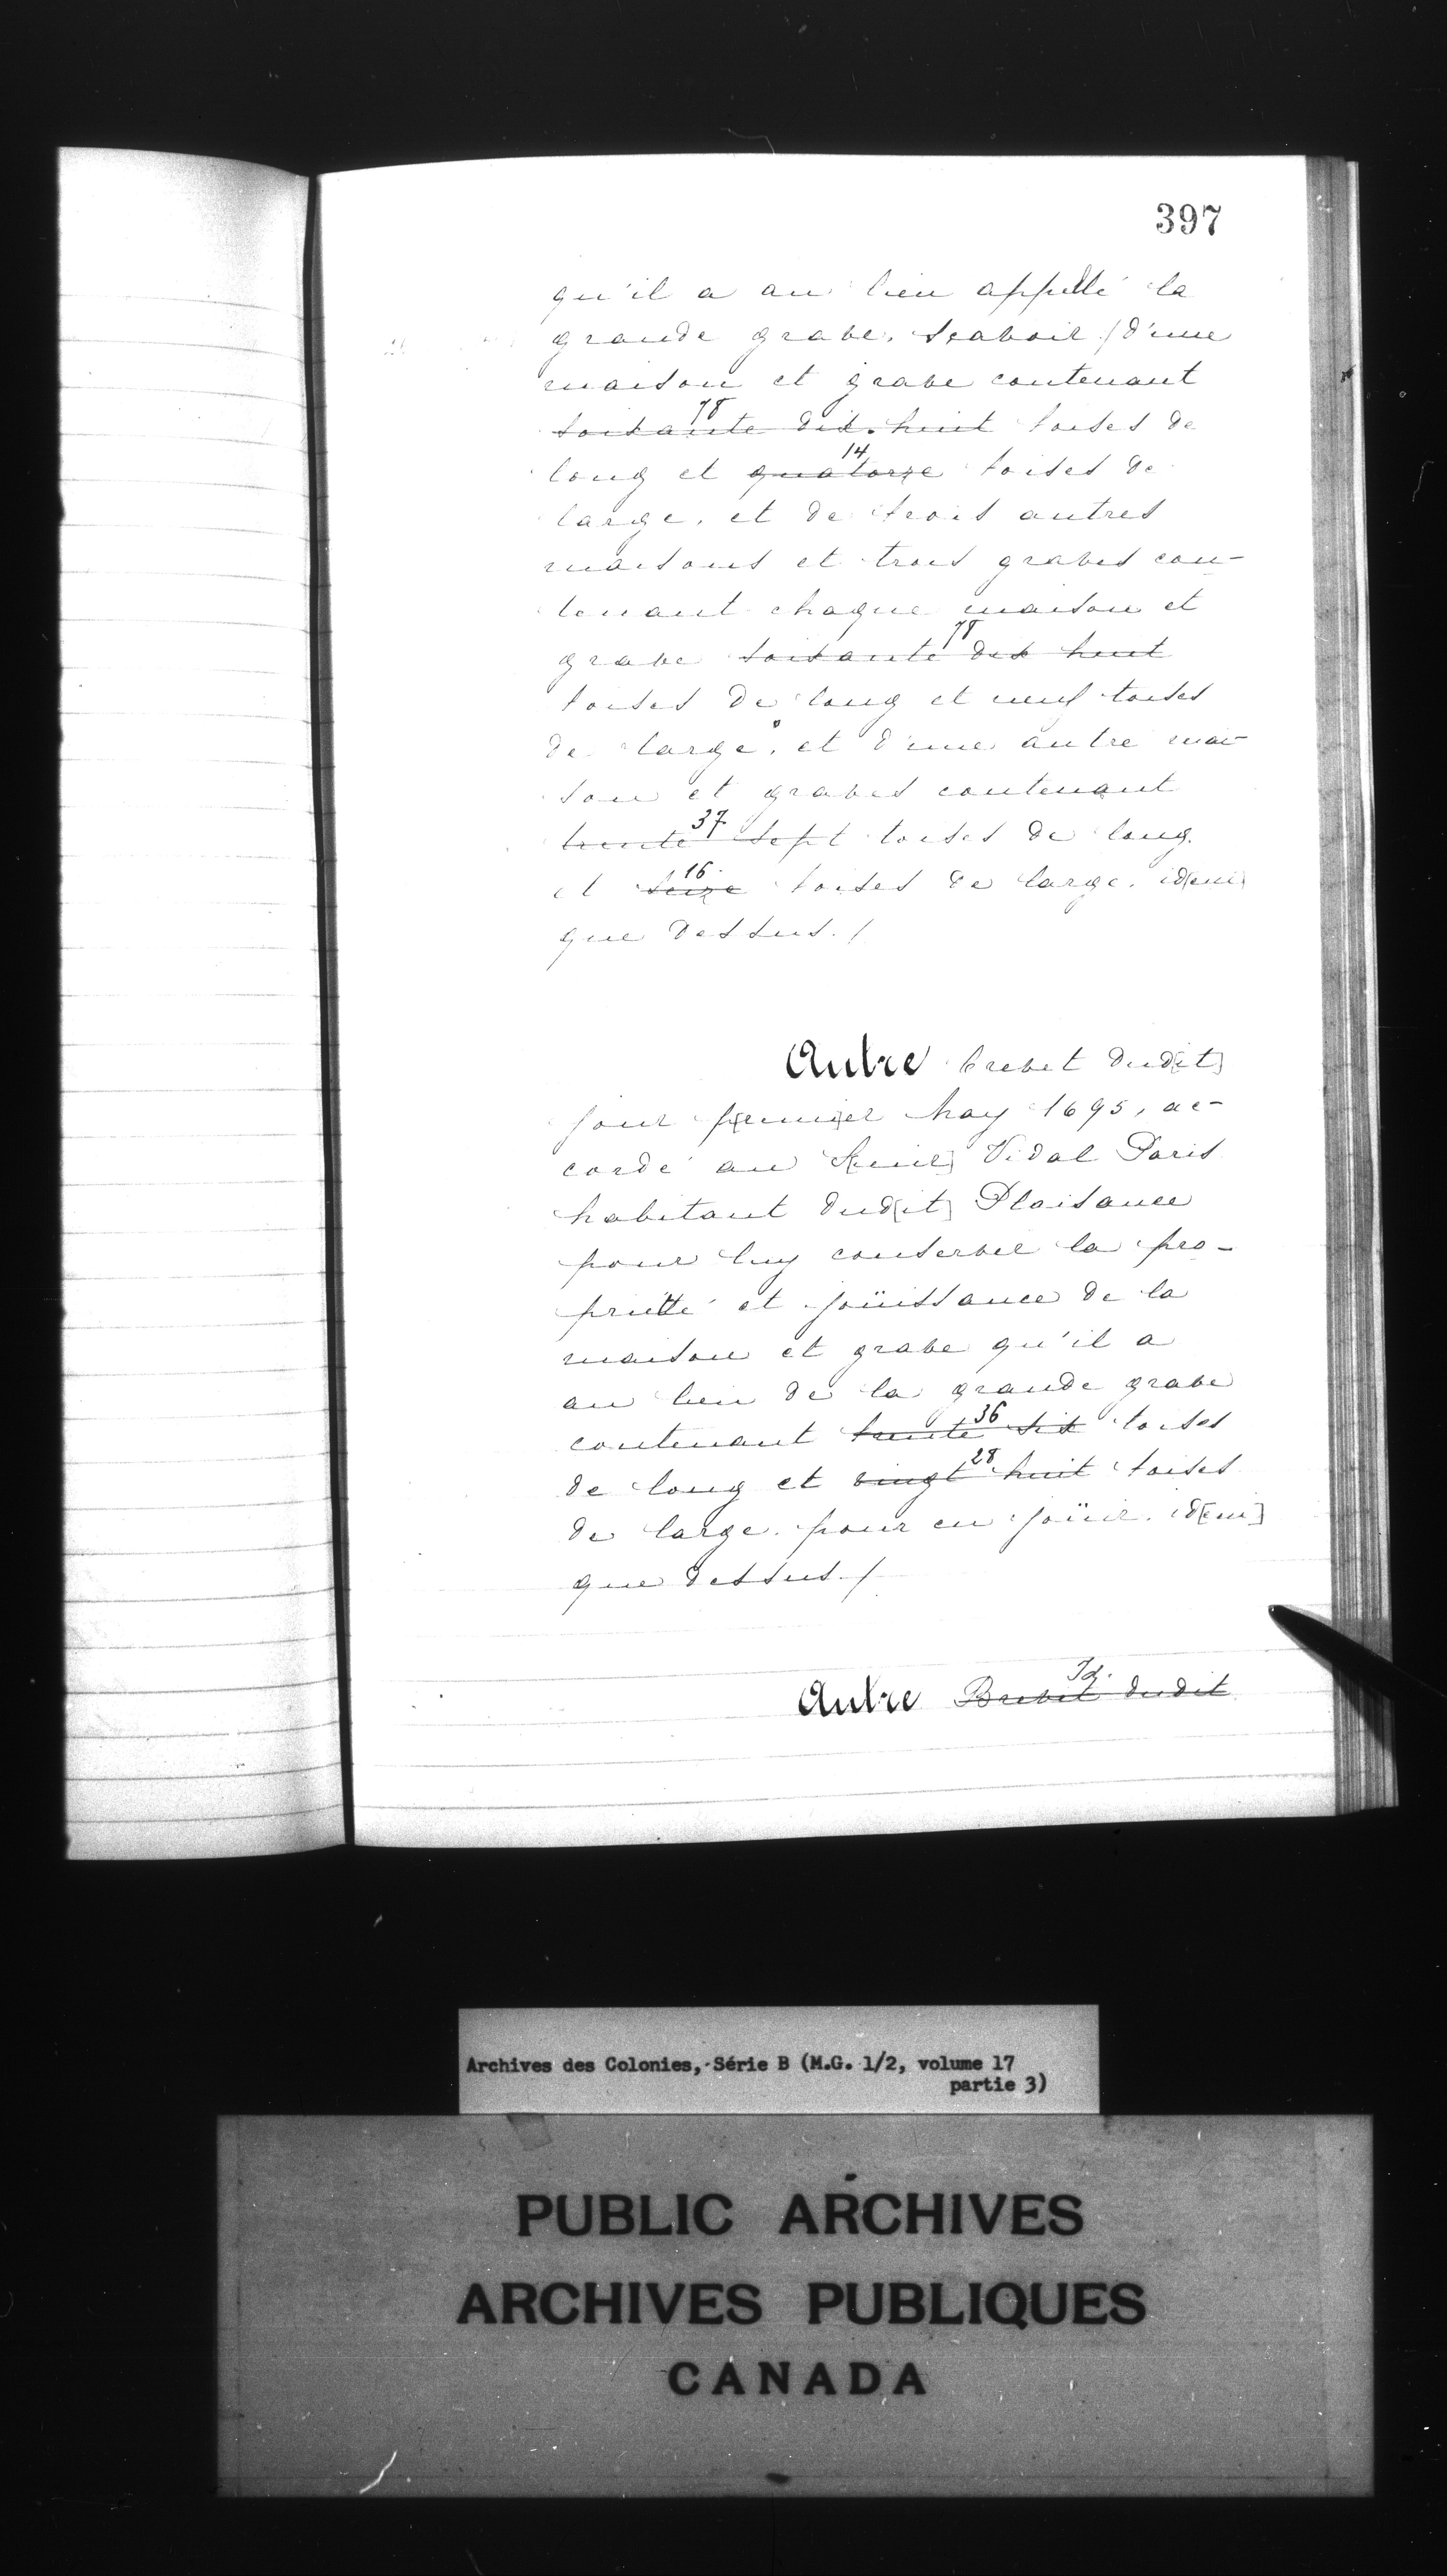 397
qu'il a au lieu appellé la
grande grave. Sçavoir / d'une
maison et grave contenant
78
soixante dix-huit toises de
14
long et quatorze toises de
large, et de trois autres
maisons et trois graves con-
tenant chaque maison et
78
grave soixante dix huit
toises de long et neuf toises
de large, et d'une autre mai-
son et graves contenant
37
trente sept toises de long
16
et seize toises de large. id[em]
que dessus./
Autre brevet dud[it]
jour p[remi]er May 1695, ac-
cordé au S[eul] Vidal Paris
habitant dud[it] Plaisance
pour luy conserver la pro-
prieté et joüissance de la
maison et grave qu'il a
au lieu de la grande grave
36
contenant trente six toises
28
de long et vingt huit toises
de large. pour en joüir. id[em]
que dessus./
Id.
Autre Brevet dudit
Archives des Colonies, Série B (M.G. 1/2, volume 17
partie 3)
PUBLIC ARCHIVES
ARCHIVES PUBLIQUES
CANADA